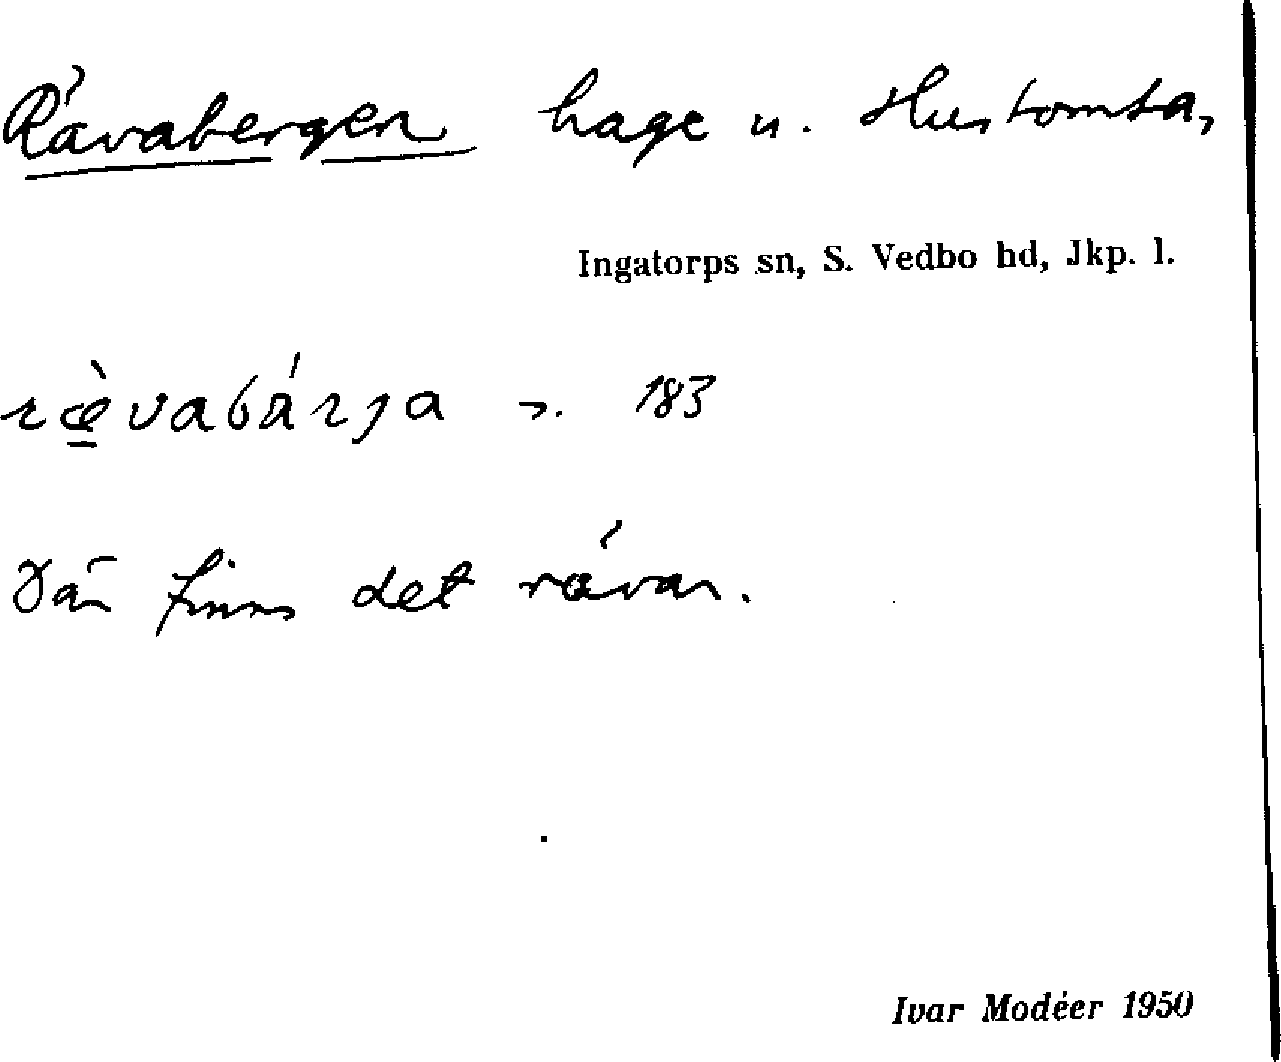 Rävabergen hage u. Hustomta,
Ingatorps sn, S. Vedbo hd, Jkp. l.
ræ̀vabár̨ja 183
Där finns det rävar.
Ivar Modéer 1950